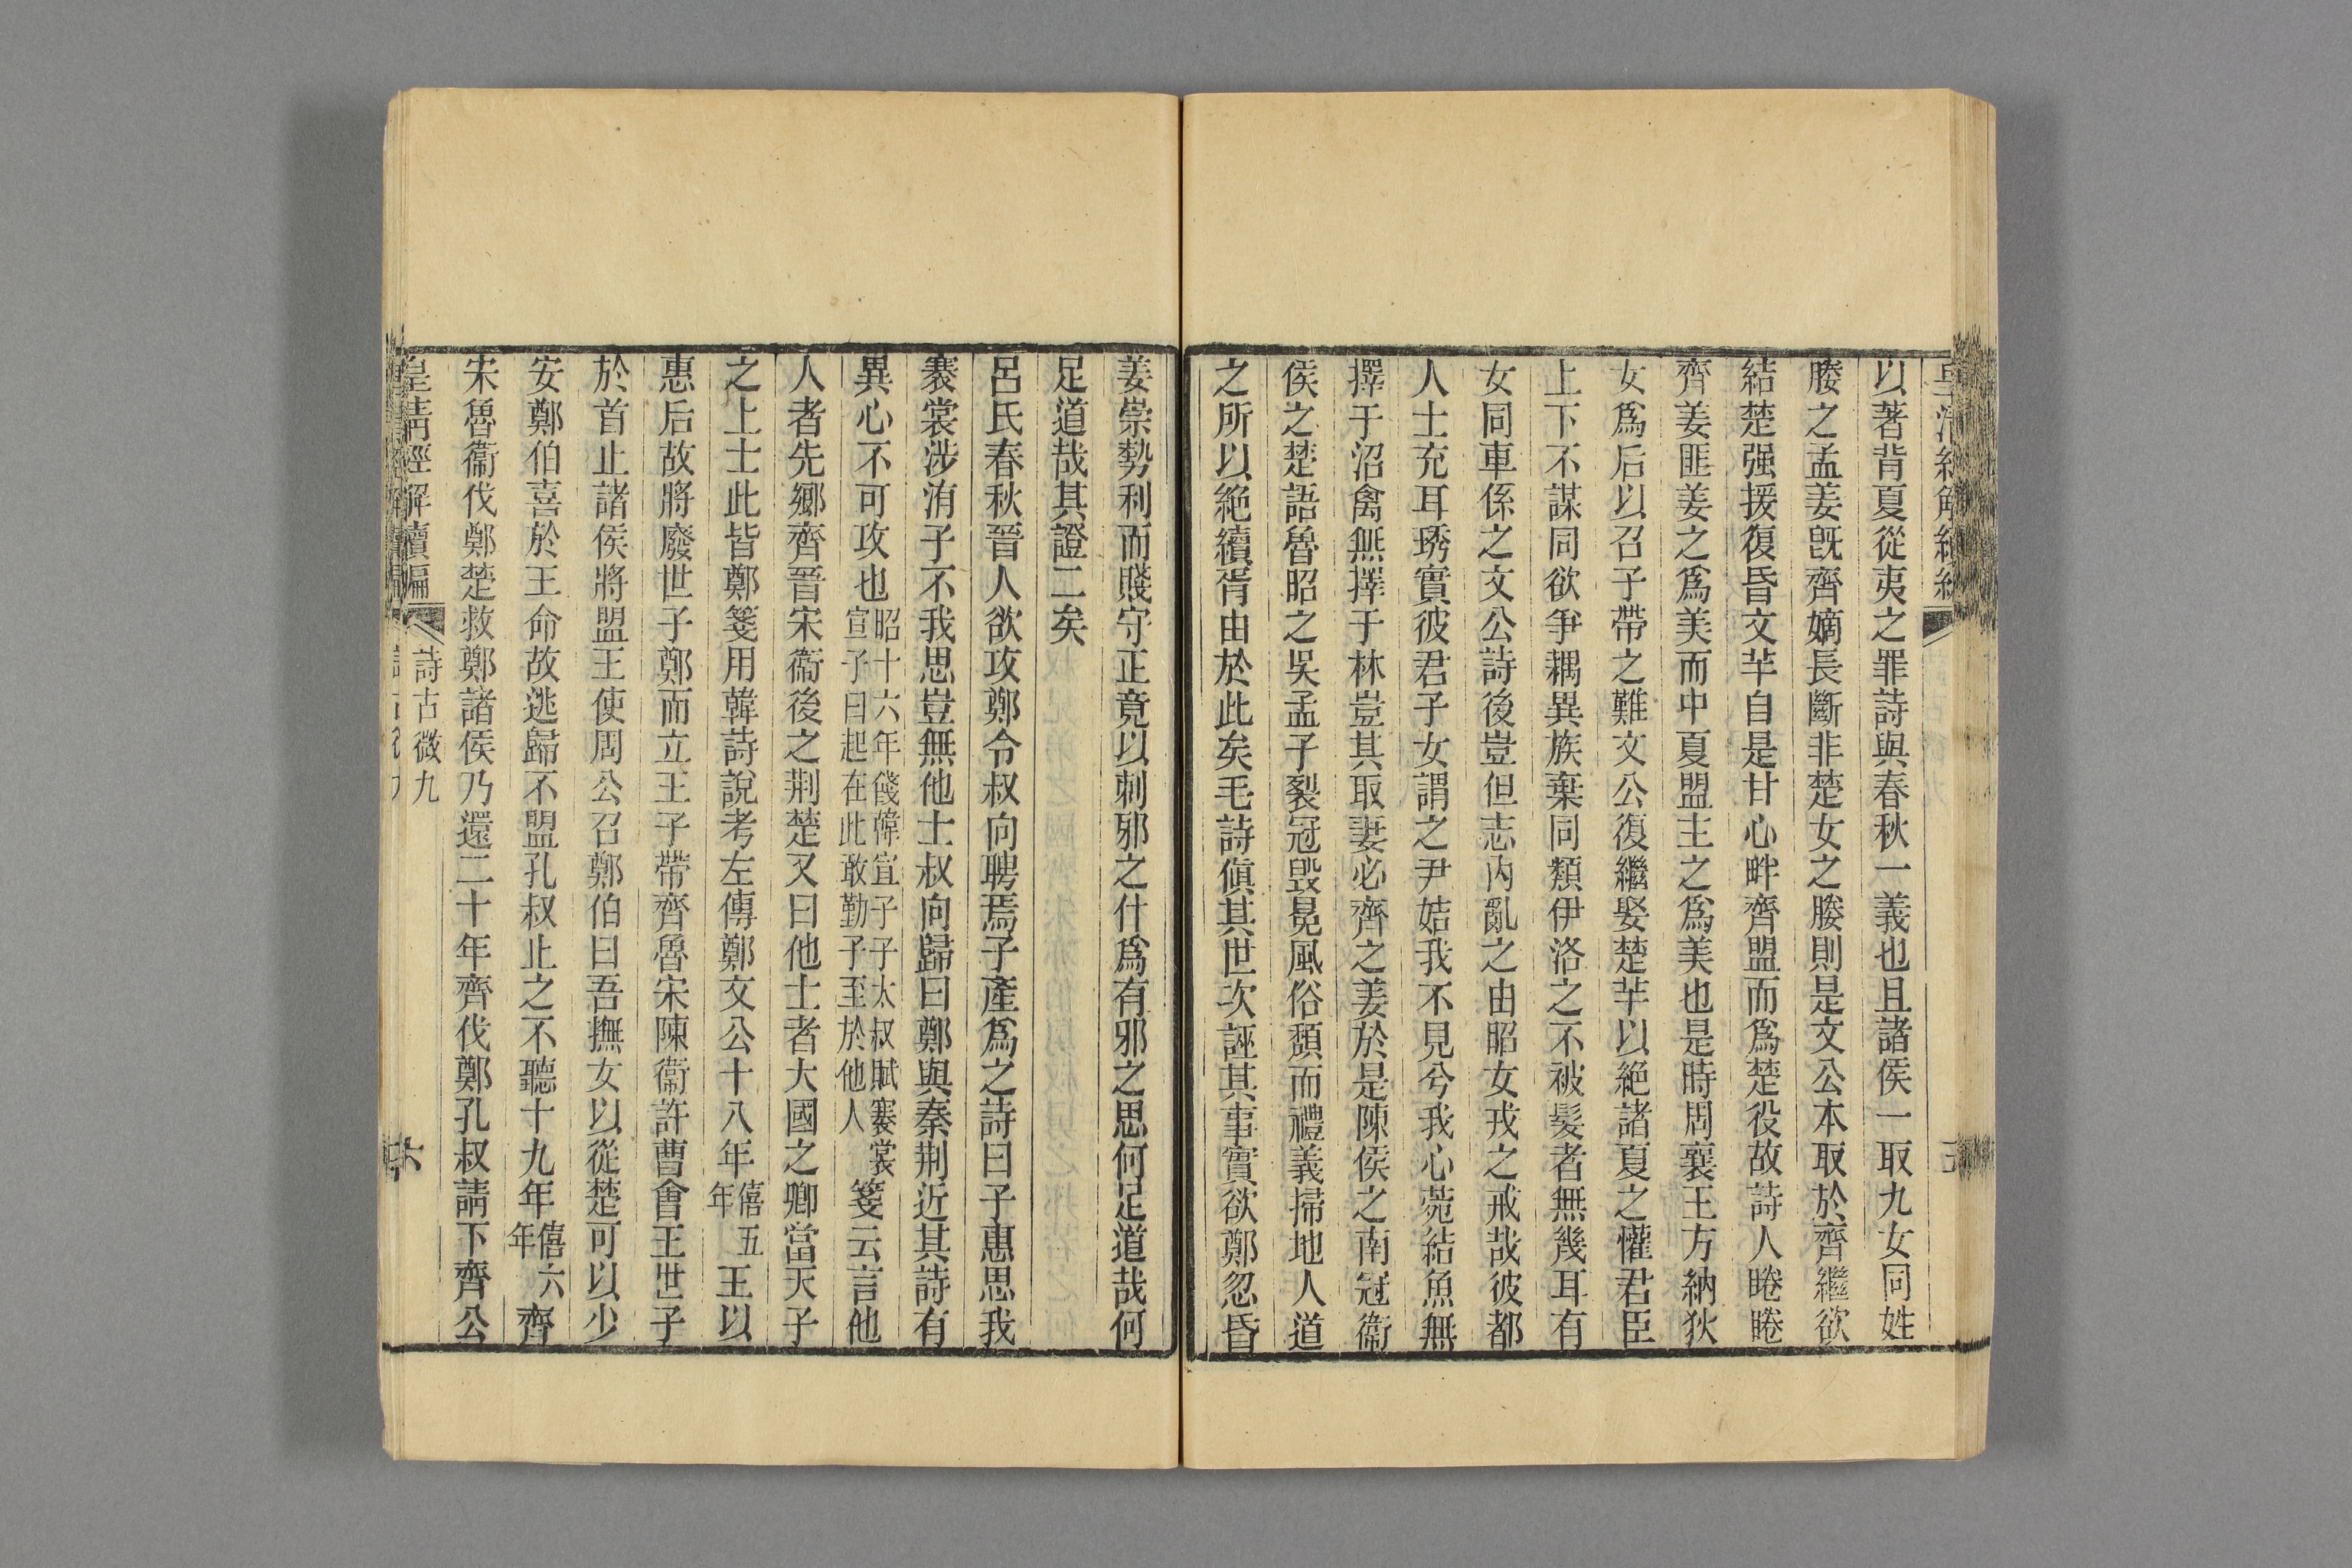 以著背夏從夷之罪詩與春秋一義也且諸侯一取九女同姓
媵之孟姜旣齊嫡長斷非楚女之媵則是文公本取於齊繼欲
結楚强援復昏文芉自是甘心畔齊盟而爲楚役故詩人睠睠
齊姜匪姜之爲美而中夏盟主之爲美也是時周襄王方納狄
女爲后以召子帶之難文公復繼娶楚芉以絶諸夏之懽君臣
上下不謀同欲爭耦異族棄同類伊洛之不被髮者無幾耳有
女同車係之文公詩後豈但志內亂之由昭女戎之戒哉彼都
人士充耳琇實彼君子女謂之尹姞我不見兮我心菀結魚無
擇于沼禽無擇于林豈其取妻必齊之姜於是陳侯之南冠衞
侯之楚語魯昭之吳孟子裂冠毀冕風俗頽而禮義掃地人道
之所以絶續胥由於此矣毛詩傎其世次誣其事實欲鄭忽昏
姜崇勢利而賤守正竟以刺邪之什爲有邪之思何足道哉何
足道哉其證二矣
呂氏春秋晉人欲攻鄭令叔向聘焉子產爲之詩曰子惠思我
褰裳涉洧子不我思豈無他士叔向歸曰鄭與秦荆近其詩有
異心不可攻也昭十六年餞韓宣子子太叔賦褰裳宣子曰起在此敢勤子至於他人箋云言他
人者先鄉齊晉宋衞後之荆楚又曰他士者大國之卿當天子
之上士此皆鄭箋用韓詩說考左傳鄭文公十八年僖五年王以
惠后故將廢世子鄭而立王子帶齊魯宋陳衞許曹會王世子
於首止諸侯將盟王使周公召鄭伯曰吾撫女以從楚可以少
安鄭伯喜於王命故逃歸不盟孔叔止之不聽十九年僖六年齊
宋魯衞伐鄭楚救鄭諸侯乃還二十年齊伐鄭孔叔請下齊公
皇淸經解續編 詩古微九 六